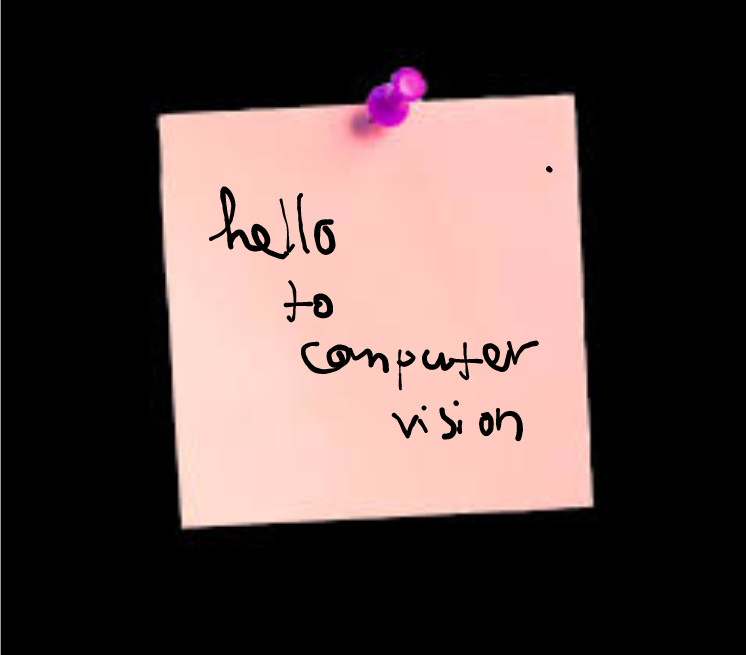 hello
to
computer
vision